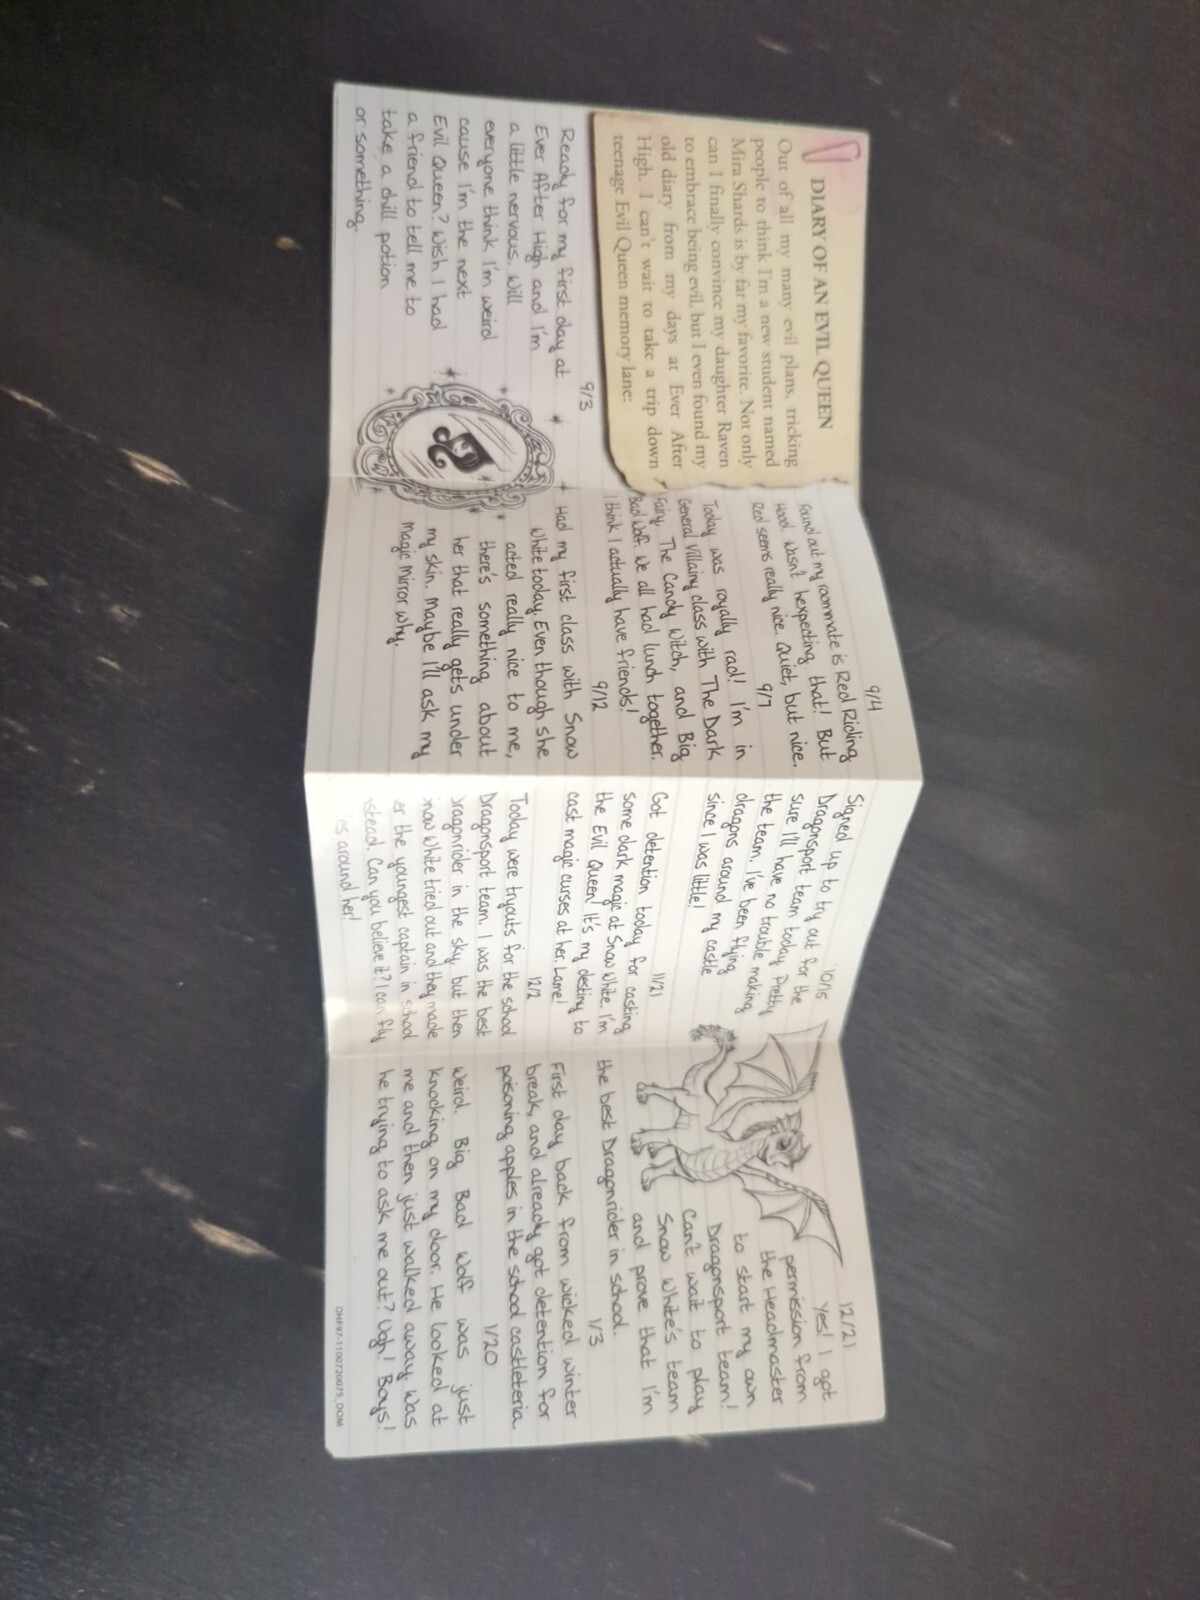 DIARY OF AN EVIL QUEEN
Out of all my many evil plans, tricking
people to think I'm a new student named
Mira Shards is by far my favorite. Not only
can I finally convince my daughter Raven
to embrace being evil, but I even found my
old diary from my days at Ever After
High. I can't wait to take a trip down
teenage Evil Queen memory lane:
9/3
Ready for my first day at
Ever After High and I'm
a little nervous. Will
everyone think I'm weird
cause I'm the next
Evil Queen? Wish I had
a friend to tell me to
take a chill potion
or something.
9/4
Found out my roommate is Red Riding
Hood. Wasn't hexpecting that! But
Red seems really nice. Quiet, but nice.
9/7
Today was royally rad! I'm in
General Villainy class with The Dark
Fairy, The Candy Witch, and Big
Bad Wolf. We all had lunch together.
I think I actually have friends!
9/12
Had my first class with Snow
White today. Even though she
acted really nice to me,
there's something about
her that really gets under
my skin. Maybe I'll ask my
magic mirror why.
10/15
Signed up to try out for the
Dragonsport team today. Pretty
sure I'll have no trouble making
the team. I've been flying
dragons around my castle
since I was little!
11/21
Got detention today for casting
some dark magic at Snow White. I'm
the Evil Queen! It's my destiny to
cast magic curses at her. Lame!
12/2
Today were tryouts for the school
Dragonsport team. I was the best
Dragonrider in the sky but then
Snow White tried out and they made
er the youngest captain in school
stead. Can you believe it? I can fly
es around her!
12/21
Yes! I got
permission from
the Headmaster
to start my own
Dragonsport team!
Can't wait to play
Snow White's team
and prove that I'm
the best Dragonrider in school.
1/3
First day back from wicked winter
break, and already got detention for
poisoning apples in the school castleteria.
1/20
Weird. Big Bad Wolf was just
knocking on my door. He looked at
me and then just walked away. Was
he trying to ask me out? Ugh! Boys!
DHF97-1100720075_DOM